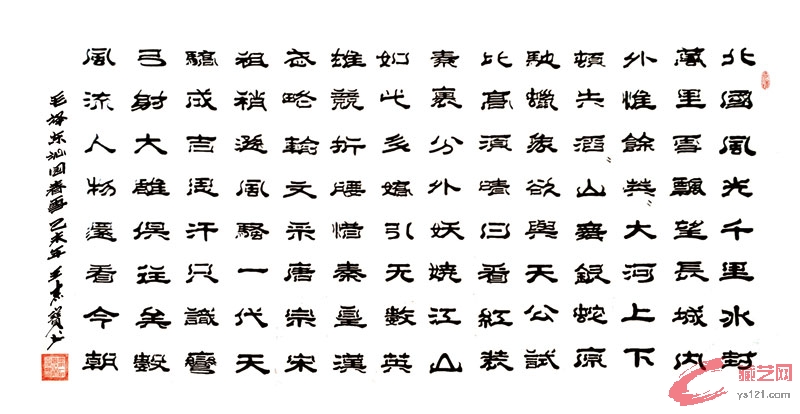 北國風光千里冰封
萬里雪飄望長城內
外惟餘莽〃大河上下
頓失滔〃山舞銀蛇原
馳蠟象欲與天公試
比高須晴日看紅裝
素裹分外妖燒江山
如此多嬌引无數英
雄競折腰惜秦皇漢
武略輸文采唐宗宋
祖稍遜風騷一代天
驕成吉思汗只識彎
弓射大雕俱往矣數
風流人物還看今朝
毛泽东沁园春雪乙未年王
ys121.com